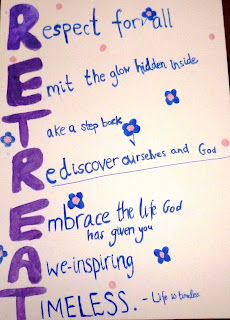 Respect for all
Emit the glow hidden inside
Take a step back
Rediscover ourselves and God
Embrace the life God
has given you
Awe-inspiring
TIMELESS. - Life is timeless